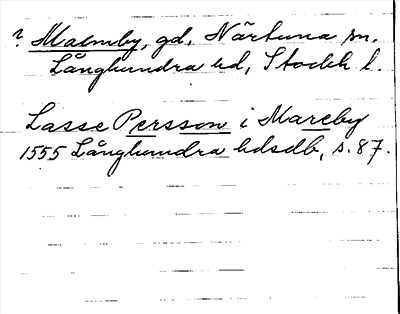 ? Malmby, gd, Närtuna sn.
Långhundra hd, Stockh l.
Lasse Persson i Mareby
1555 Långhundra hdsdb, s. 87.